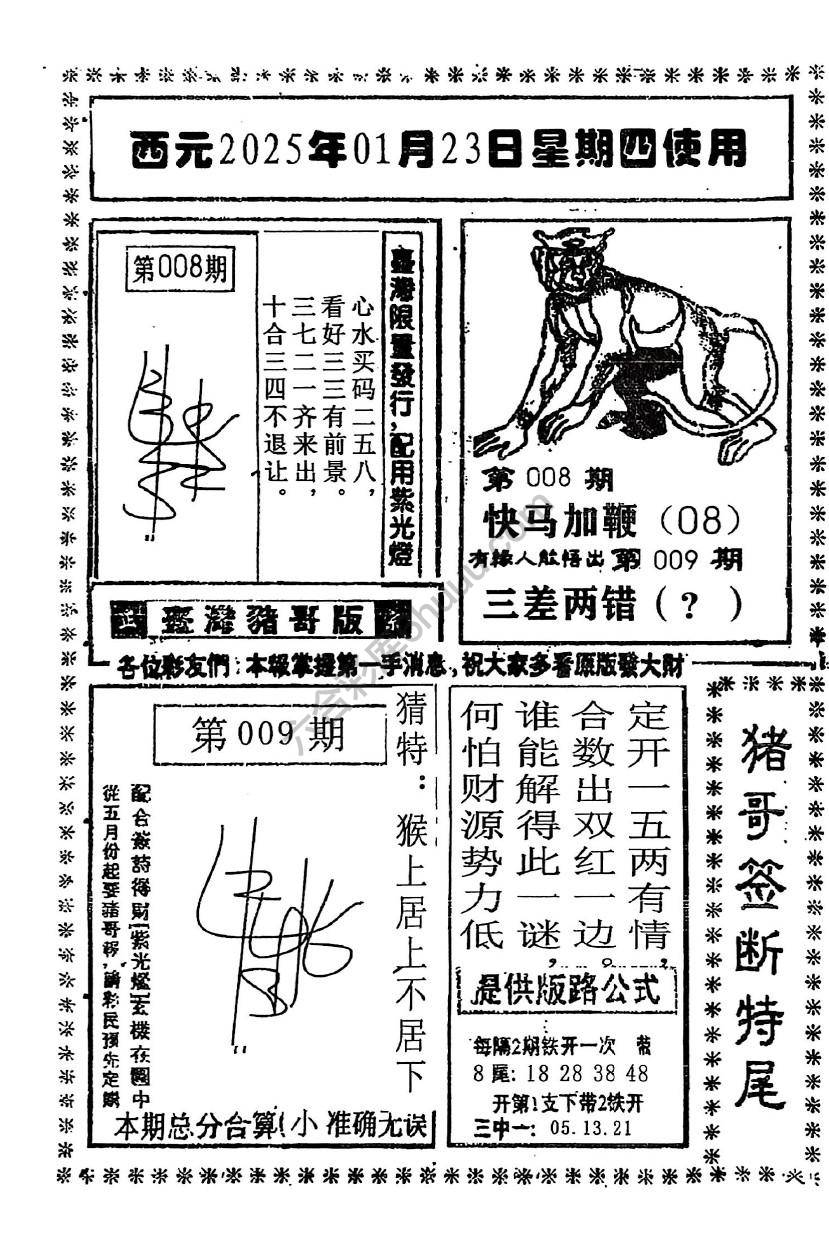 西元2025年01月23日星期四使用
第008期
心水买码二五八，
看好三三有前景。
三七二一齐来出，
十合三四不退让。
臺灣限量發行，配用紫光燈
第 008 期
快马加鞭（08）
有緣人能悟出 第 009 期
三差两错（？）
臺灣豬哥版
各位彩友們：本報掌握第一手消息，祝大家多看原版發大財
第 009 期
猜特：猴上居上不居下
配合簽詩得財紫光燈玄機在圖中
從五月份起要豬哥報，請彩民預先定購
本期总分合算(小 准确无误
定开一五两有情，
合数出双红一边。
谁能解得此一谜，
何怕财源势力低
提供版路公式
每隔2期铁开一次 带
8 尾: 18 28 38 48
开第1支下带2铁开
三中一: 05.13.21
猪哥签断特尾